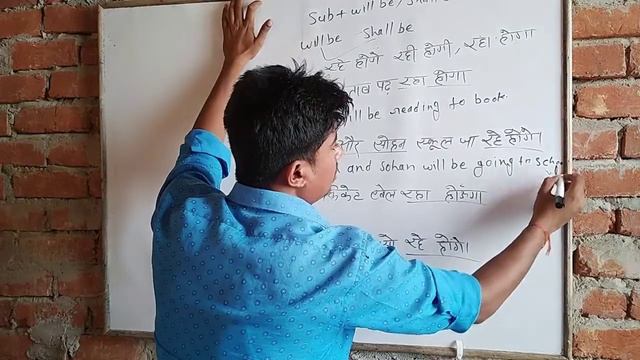 Sub + will be /
will be shall be
रहे होंगे रही होगी, रहा होगा
पढ़ रहा होगा
be reading to book.
और सोहन स्कूल जा रहे होंगे।
and sohan will be going to sch
खेल रहा होऊंगा
रहे होंगे।